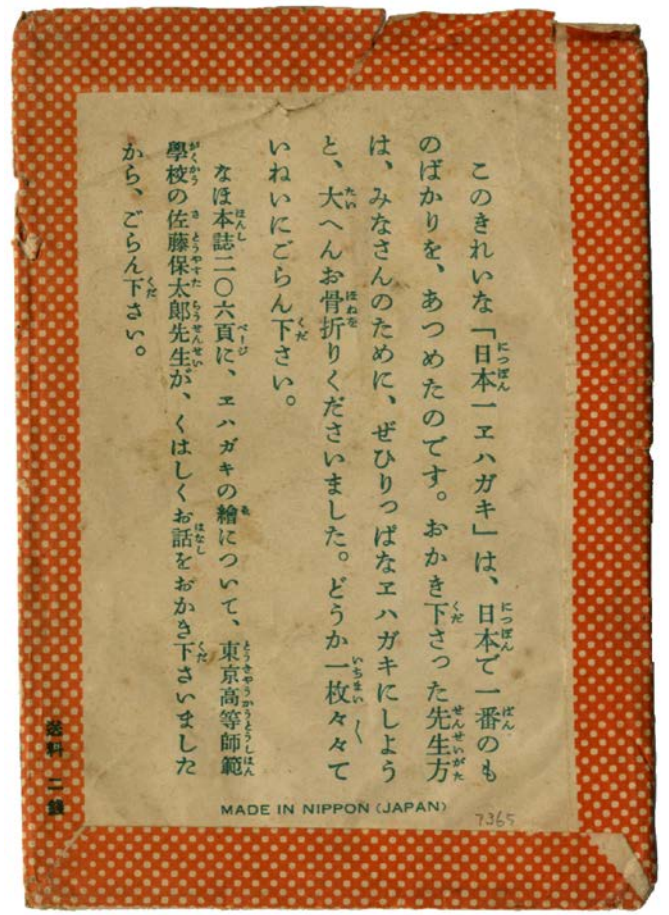 このきれいな「日本一ヱハガキ」は、日本で一番のも
のばかりを、あつめたのです。おかき下さった先生方
は、みなさんのために、ぜひりっぱなヱハガキにしよう
と、大へんお骨折りくださいました。どうか一枚々々て
いねいにごらん下さい。
なほ本誌二〇六頁に、ヱハガキの繪について、東京高等師範
學校の佐藤保太郎先生が、くはしくお話をおかき下さいました
から、ごらん下さい。
送料 二錢
MADE IN NIPPON (JAPAN)
7365